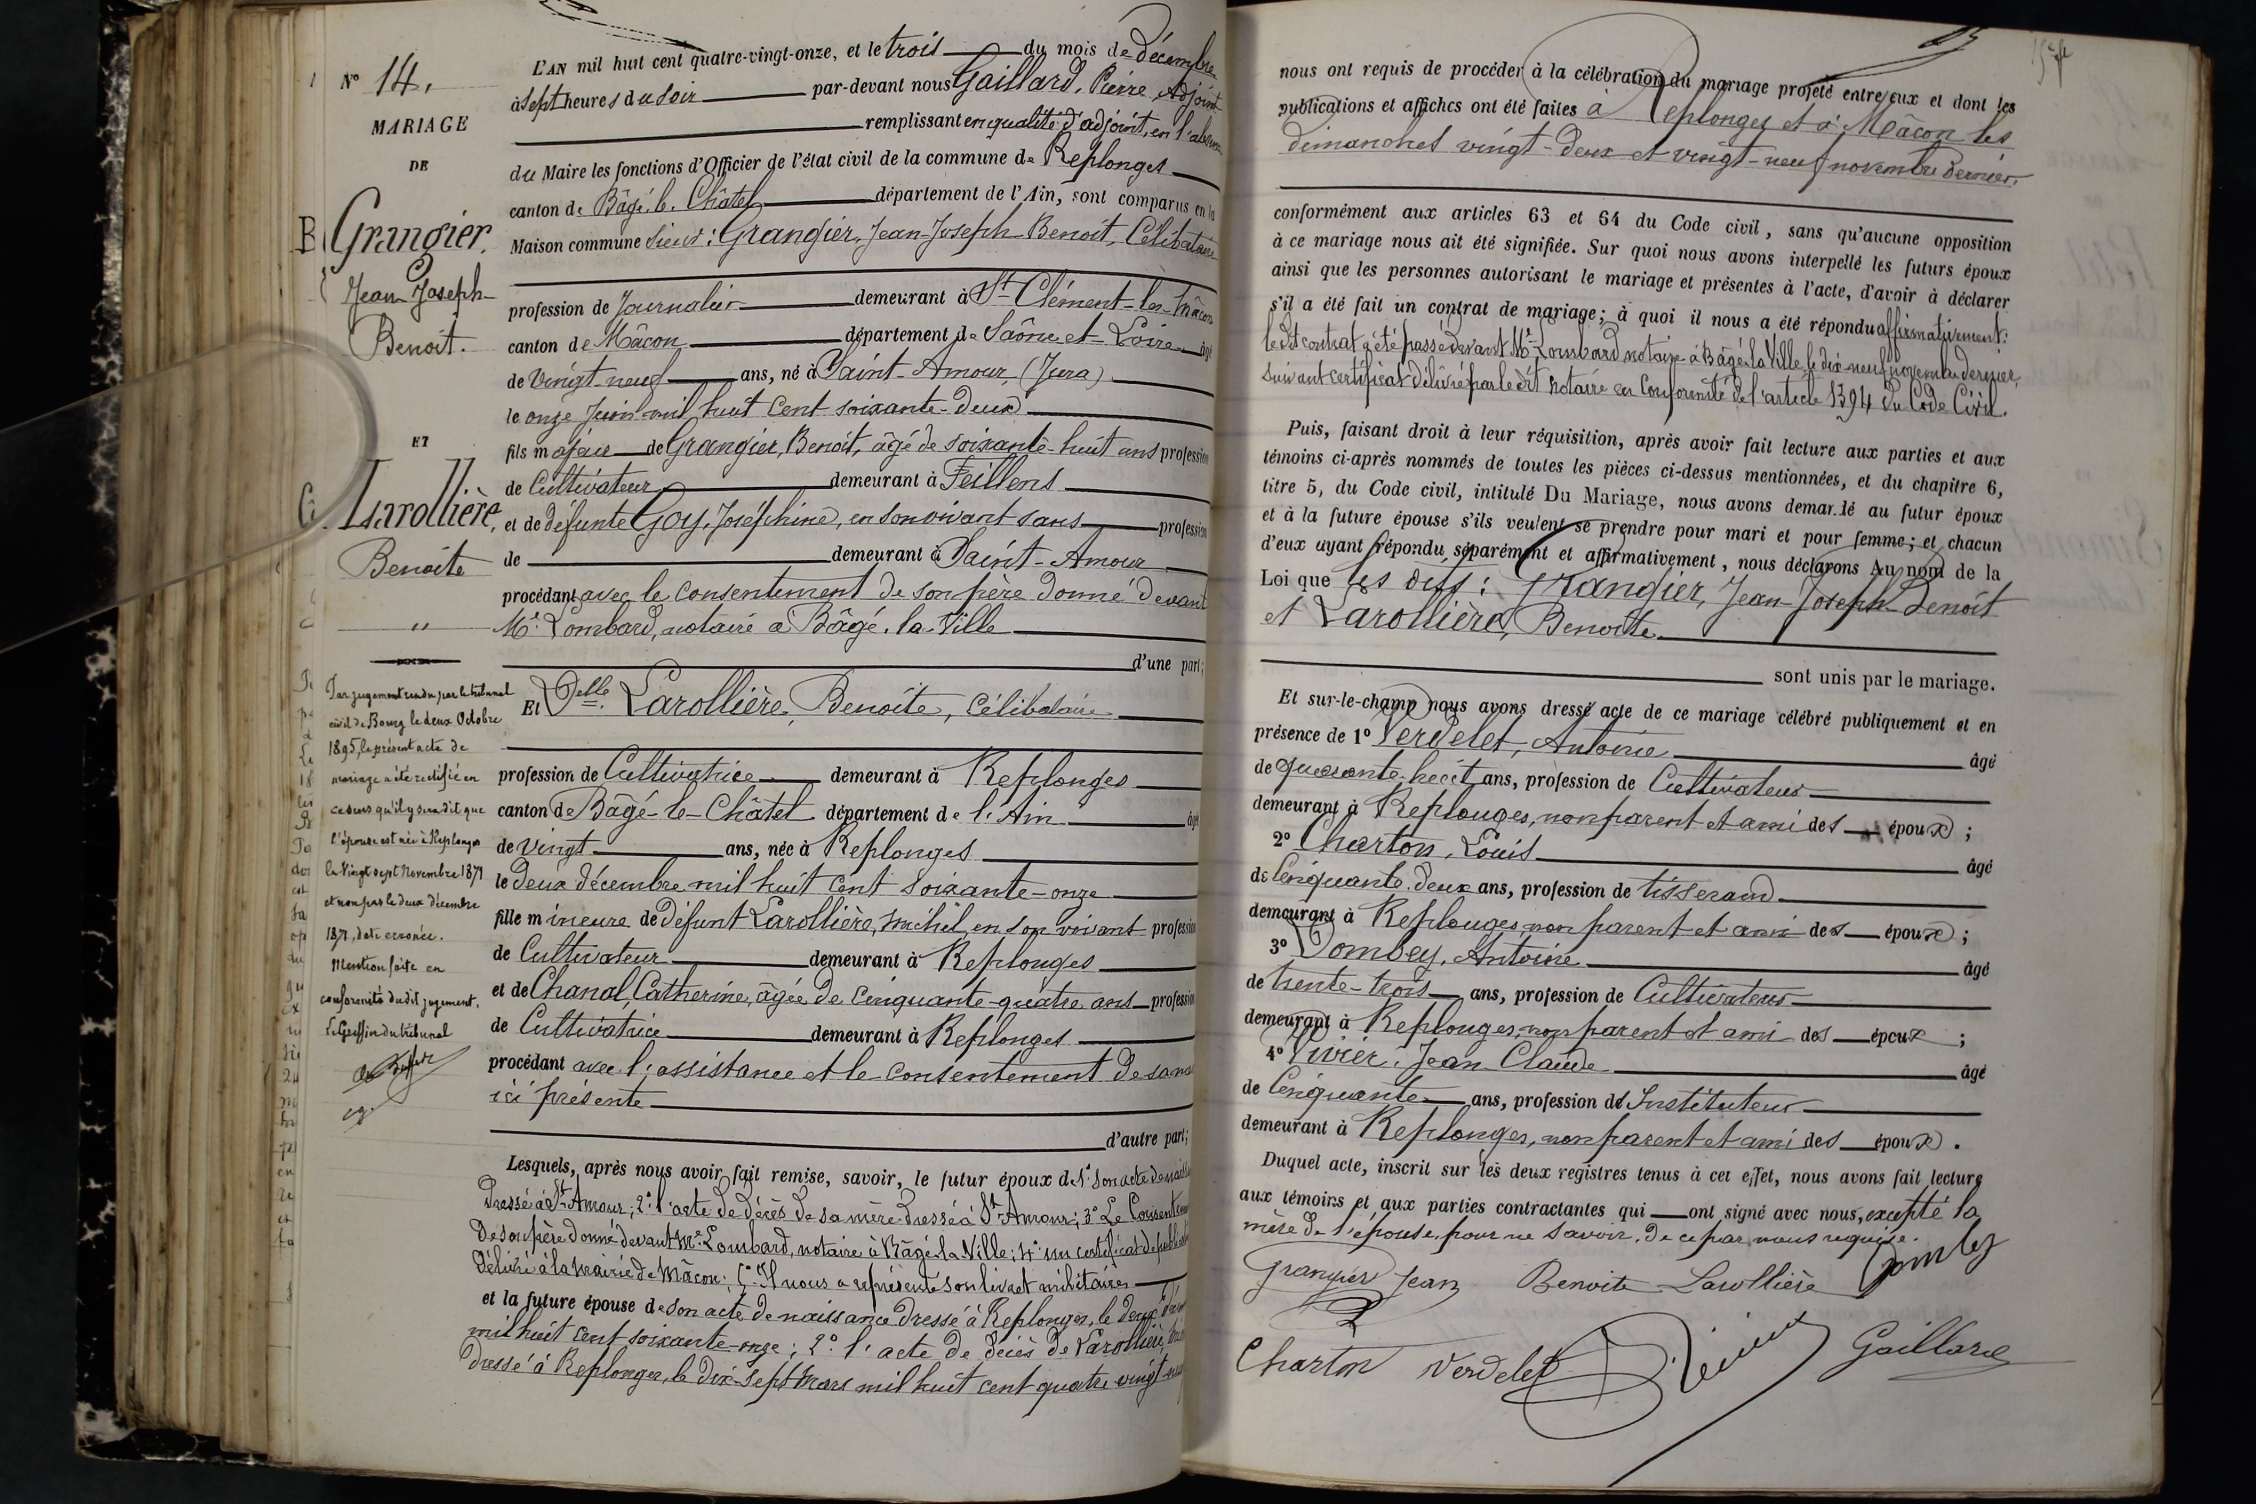 N° 14.
MARIAGE
DE
Grangier,
Jean-Joseph-
Benoit.
ET
Larollière,
Benoite
"
Par jugement rendu par le tribunal
civil de Bourg le deux Octobre
1895, le présent acte de
mariage a été rectifié en
ce sens qu'il y sera dit que
l'épouse est née à Replonges
le Vingt sept Novembre 1871
et non pas le deux décembre
1871, date erronée.
Mention faite en
conformité dudit jugement.
Le Greffier du tribunal
L'AN mil huit cent quatre-vingt-onze, et le trois du mois de décembre
à sept heures du soir par-devant nous Gaillard, Pierre, Adjoint
remplissant en qualité d'adjoint, en l'absence
du Maire les fonctions d'Officier de l'état civil de la commune de Replonges
canton de Bâgé-le-Châtel département de l'Ain, sont comparus en la
Maison commune sieur : Grangier, Jean-Joseph-Benoit, Célibataire
profession de Journalier demeurant à St Clément-les-Mâcon
canton de Mâcon département de Saône-et-Loire âgé
de vingt-neuf ans, né à Saint-Amour, (Jura)
le onze Juin mil huit cent soixante-deux
fils majeur de Grangier, Benoit, âgé de soixante-huit ans profession
de Cultivateur demeurant à Feillens
et de défunte Goy, Joséphine, en son vivant sans profession
de demeurant à Saint-Amour
procédant avec le consentement de son père donné devant
Me Lombard, notaire à Bâgé-la-Ville
d'une part;
Et Delle Larollière, Benoite, célibataire
profession de Cultivatrice demeurant à Replonges
canton de Bâgé-le-Châtel département de l'Ain âgée
de vingt ans, née à Replonges
le deux décembre mil huit cent soixante-onze
fille mineure de défunt Larollière, Michel, en son vivant profession
de Cultivateur demeurant à Replonges
et de Chanal, Catherine, âgée de cinquante-quatre ans profession
de Cultivatrice demeurant à Replonges
procédant avec l'assistance et le consentement de sa mère
ici présente
d'autre part;
Lesquels, après nous avoir fait remise, savoir, le futur époux de 1° son acte de naissance
dressé à St Amour; 2° l'acte de décès de sa mère dressé à St Amour; 3° Le Consentement
de son père donné devant Me Lombard, notaire à Bâgé-la-Ville; 4° un certificat de publication
délivré à la mairie de Mâcon; 5° Il nous a représenté son livret militaire
et la future épouse de son acte de naissance dressé à Replonges, le deux décembre
mil huit cent soixante-onze; 2° l'acte de décès de Larollière, Michel
dressé à Replonges, le dix-sept Mars mil huit cent quatre vingt
nous ont requis de procéder à la célébration du mariage projeté entre eux et dont les
publications et affiches ont été faites à Replonges et à Mâcon les
dimanches vingt-deux et vingt-neuf novembre dernier,
conformément aux articles 63 et 64 du Code civil, sans qu'aucune opposition
à ce mariage nous ait été signifiée. Sur quoi nous avons interpellé les futurs époux
ainsi que les personnes autorisant le mariage et présentes à l'acte, d'avoir à déclarer
s'il a été fait un contrat de mariage; à quoi il nous a été répondu affirmativement:
ledit contrat a été passé devant Me Lombard notaire à Bâgé-la-Ville, le dix-neuf novembre dernier,
suivant certificat délivré par le dit notaire en conformité de l'article 1394 du Code Civil.
Puis, faisant droit à leur réquisition, après avoir fait lecture aux parties et aux
témoins ci-après nommés de toutes les pièces ci-dessus mentionnées, et du chapitre 6,
titre 5, du Code civil, intitulé Du Mariage, nous avons demandé au futur époux
et à la future épouse s'ils veulent se prendre pour mari et pour femme; et chacun
d'eux ayant répondu séparément et affirmativement, nous déclarons Au nom de la
Loi que les dits : Grangier, Jean-Joseph-Benoit
et Larollière, Benoite
sont unis par le mariage.
Et sur-le-champ nous avons dressé acte de ce mariage célébré publiquement et en
présence de 1° Verdelet, Antoine âgé
de quarante-huit ans, profession de Cultivateur
demeurant à Replonges, non parent et ami des époux;
2° Charton, Louis âgé
de cinquante-deux ans, profession de tisserand
demeurant à Replonges, non parent et ami des époux;
3° Dombey, Antoine âgé
de trente-trois ans, profession de Cultivateur
demeurant à Replonges, non parent et ami des époux;
4° Vivier, Jean-Claude âgé
de Cinquante ans, profession de Instituteur
demeurant à Replonges, non parent et ami des époux.
Duquel acte, inscrit sur les deux registres tenus à cet effet, nous avons fait lecture
aux témoins et aux parties contractantes qui ont signé avec nous, excepté la
mère de l'épouse, pour ne savoir, de ce par nous requise.
Grangier Jean Benoite Larollière Dombey
Charton Verdelet Vivier Gaillard